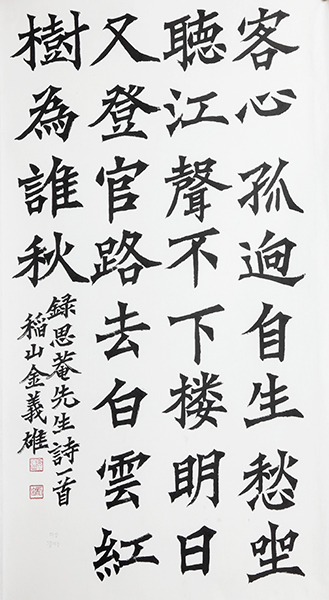 客心孤逈自生愁坐
聽江聲不下楼明日
又登官路去白雲紅
樹為誰秋
録思菴先生詩一首
稲山金義雄